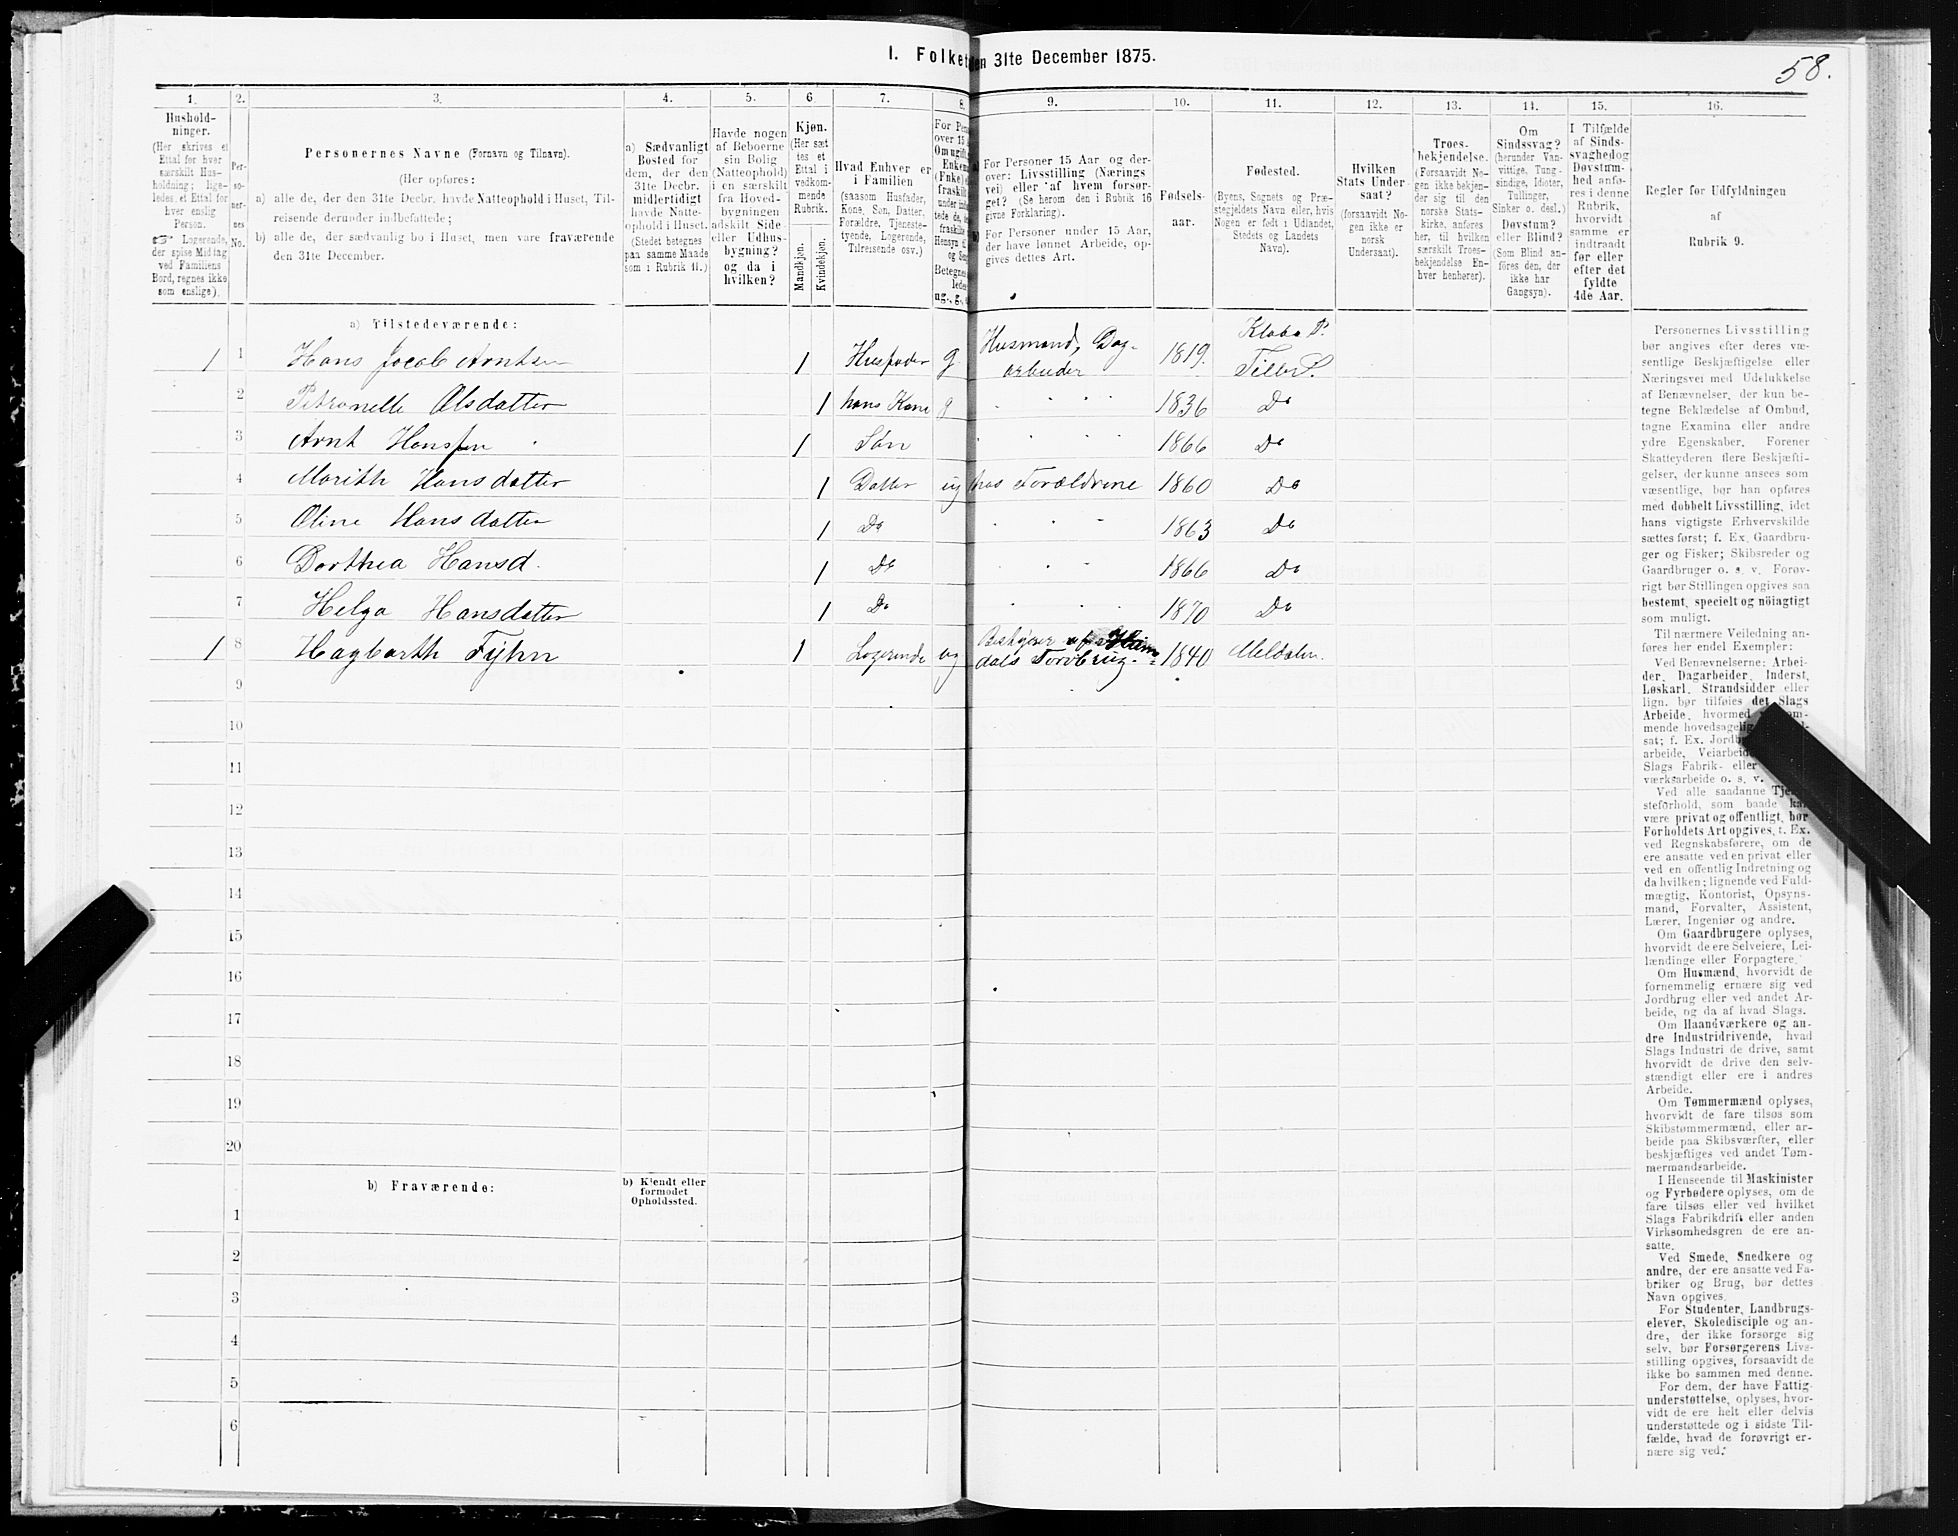 I. Folket en 31te December 1875.
58.
1. 2. 3. 4. 5. 6 7. 8. 9. 10. 11. 12. 13. 14. 15. 16.
Hushold-
ninger.
(Her skrives et
Ettal for hver
særskilt Hus-
holdning; lige-
ledes et Ettal for
hver enslig
Person.
☞ Logerende,
der spise Middag
ved Familiens
Bord, regnes ikke
som enslige).
Per-
so-
ner-
nes
No.
Personernes Navne (Fornavn og Tilnavn).
(Her opføres:
a) alle de, der den 31te Decbr. havde Natteophold i Huset, Til-
reisende derunder indbefattede;
b) alle de, der sædvanlig bo i Huset, men vare fraværende
den 31te December.
a) Sædvanligt
Bosted for
dem, der den
31te Decbr.
midlertidigt
havde Natte-
ophold i Huset.
(Stedet betegnes
paa samme Maade
som i Rubrik 11.)
Havde nogen
af Beboerne
sin Bolig
(Natteophold)
i en særskilt
fra Hoved-
bygningen
adskilt Side-
eller Udhus-
bygning?
og da i
hvilken?
Kjøn.
(Her sæt
tes et
Ettal i
vedkom-
mende
Rubrik.
Mandkjøn.
Kvindekjøn.
Hvad Enhver er
i Familien
(saasom Husfader,
Kone, Søn, Datter,
Forældre, Tjeneste-
tyende, Logerende,
Tilreisende osv.)
For Pers
over 15
Om ugift
Enkem
(Fnke)
fraskilt
under ind
tede de,
fraskilte
Hensyn
og Sen
Betegnes
ledes
ug., g.,
For Personer 15 Aar og der-
over: Livsstilling (Nærings
vei) eller af hvem forsør-
get? (Se herom den i Rubrik 16
givne Forklaring).
For Personer under 15 Aar,
der have lønnet Arbeide, op-
gives dettes Art.
Fødsels-
aar.
Fødested.
(Byens, Sognets og Præ-
stegjeldets Navn eller, hvis
Nogen er født i Udlandet,
Stedets og Landets
Navn).
Hvilken
Stats Under-
saat?
(forsaavidt No-
gen ikke er
norsk
Undersaat).
Troes-
bekjendelse.
(Forsaavidt No-
gen ikke bekjen-
der sig til den
norske Stats-
kirke, anføres
her, til hvilken
særskilt Troes-
bekjendelse En-
hver henhører).
Om
Sindssvag?
(herunder Van-
vittige, Tung-
sindige, Idioter,
Tullinger,
Sinker o. desl.)
Døvstum?
eller Blind?
(Som Blind an-
føres den, der
ikke har
Gangsyn).
I Tilfælde
af Sinds-
svaghed og
Døvstum-
hed anfø-
res i denne
Rubrik,
hvorvidt
samme er
indtraadt
før eller
efter det
fyldte
4de Aar.
Regler for Udfyldningen
af
Rubrik 9.
a) Tilstedeværende:
1 1 Hans Jacob Arntsen 1 Husfader g Husmand, Dag-
arbeider 1819. Klæbo P.
Tiller S.
2 Petronelle Olsdatter 1 hans Kone g " " " 1836 Do
3 Arnt Hansen 1 Søn " " " 1866 Do
4 Marith Hansdatter 1 Datter ug hos Forældrene 1860 Do
5 Oline Hansdatter 1 Do " " " 1863 Do
6 Dorthea Hansd. 1 Do 1866 Do
7 Helga Hansdatter 1 Do " " " 1870 Do
1 8 Hagbarth Fyhn 1 Logerende ug Bestyrer af Heim-
dals Torvbrug. 1840 Meldalen.
9
10
11
12
13
14
15
16
17
18
19
20
b) Fraværende:
b) Kjendt eller
formodet
Opholdssted.
1
2
3
4
5
6
Personernes Livsstilling
bør angives efter deres væ-
sentlige Beskjæftigelse eller
Næringsvei med Udelukkelse
af Benævnelser, der kun be-
tegne Beklædelse af Ombud,
tagne Examina eller andre
ydre Egenskaber. Forener
Skatteyderen flere Beskjæfti-
gelser, der kunne ansees som
væsentlige, bør han opføres
med dobbelt Livsstilling, idet
hans vigtigste Erhvervskilde
sættes først; f. Ex. Gaardbru-
ger og Fisker; Skibsreder og
Gaardbruger o. s. v. Forøv-
rigt bør Stillingen opgives saa
bestemt, specielt og nøiagtigt
som muligt.
Til nærmere Veiledning an-
føres her endel Exempler:
Ved Benævnelserne: Arbei-
der, Dagarbeider, Inderst,
Løskarl, Strandsidder eller
lign. bør tilføies det Slags
Arbeide, hvormed om-
mende hovedsagelig
sat; f. Ex. Jordb
arbeide, Veiarbeid
Slags Fabrik- eller
værksarbeide o. s. v.
Ved alle saadanne Tje
steforhold, som baade kan
være privat og offentligt, bør
Forholdets Art opgives, t. Ex.
ved Regnskabsførere, om de
ere ansatte ved en privat eller
ved en offentlig Indretning og
da hvilken; lignende ved Fuld-
mægtig, Kontorist, Opsyns-
mand, Forvalter, Assistent,
Lærer, Ingeniør og andre.
Om Gaardbrugere oplyses,
hvorvidt de ere Selveiere, Lei-
lændinge eller Forpagtere.
Om Husmænd, hvorvidt de
fornemmelig ernære sig ved
Jordbrug eller ved andet Ar-
beide, og da af hvad Slags.
Om Haandværkere og an-
dre Industridrivende, hvad
Slags Industri de drive, samt
hvorvidt de drive den selv-
stændigt eller ere i andres
Arbeide.
Om Tømmermænd oplyses,
hvorvidt de fare tilsøs som
Skibstømmermænd, eller ar-
beide paa Skibsværfter, eller
beskjæftiges ved andet Tøm-
mermandsarbeide.
I Henseende til Maskinister
og Fyrbødere oplyses, om de
fare tilsøs eller ved hvilket
Slags Fabrikdrift eller anden
Virksomhedsgren de ere an-
satte.
Ved Smede, Snedkere og
andre, der ere ansatte ved Fa-
briker og Brug, bør dettes
Navn opgives.
For Studenter, Landbrugs-
elever, Skoledisciple og an-
dre, der ikke forsørge sig
selv, bør Forsørgerens Livs-
stilling opgives, forsaavidt de
ikke bo sammen med denne.
For dem, der have Fattig-
understøttelse, oplyses, hvor-
vidt de ere helt eller delvis
understøttede og i sidste Til-
fælde, hvad de forøvrigt er-
nære sig ved.